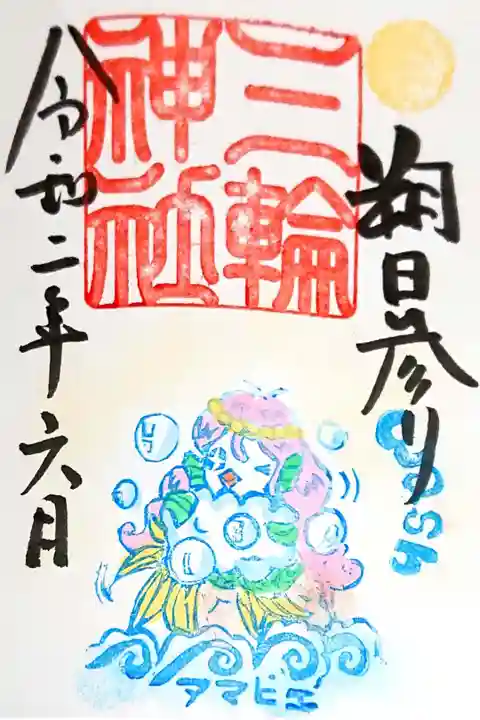 朔日参り
三輪
神社
令和二年六月
アマビエ